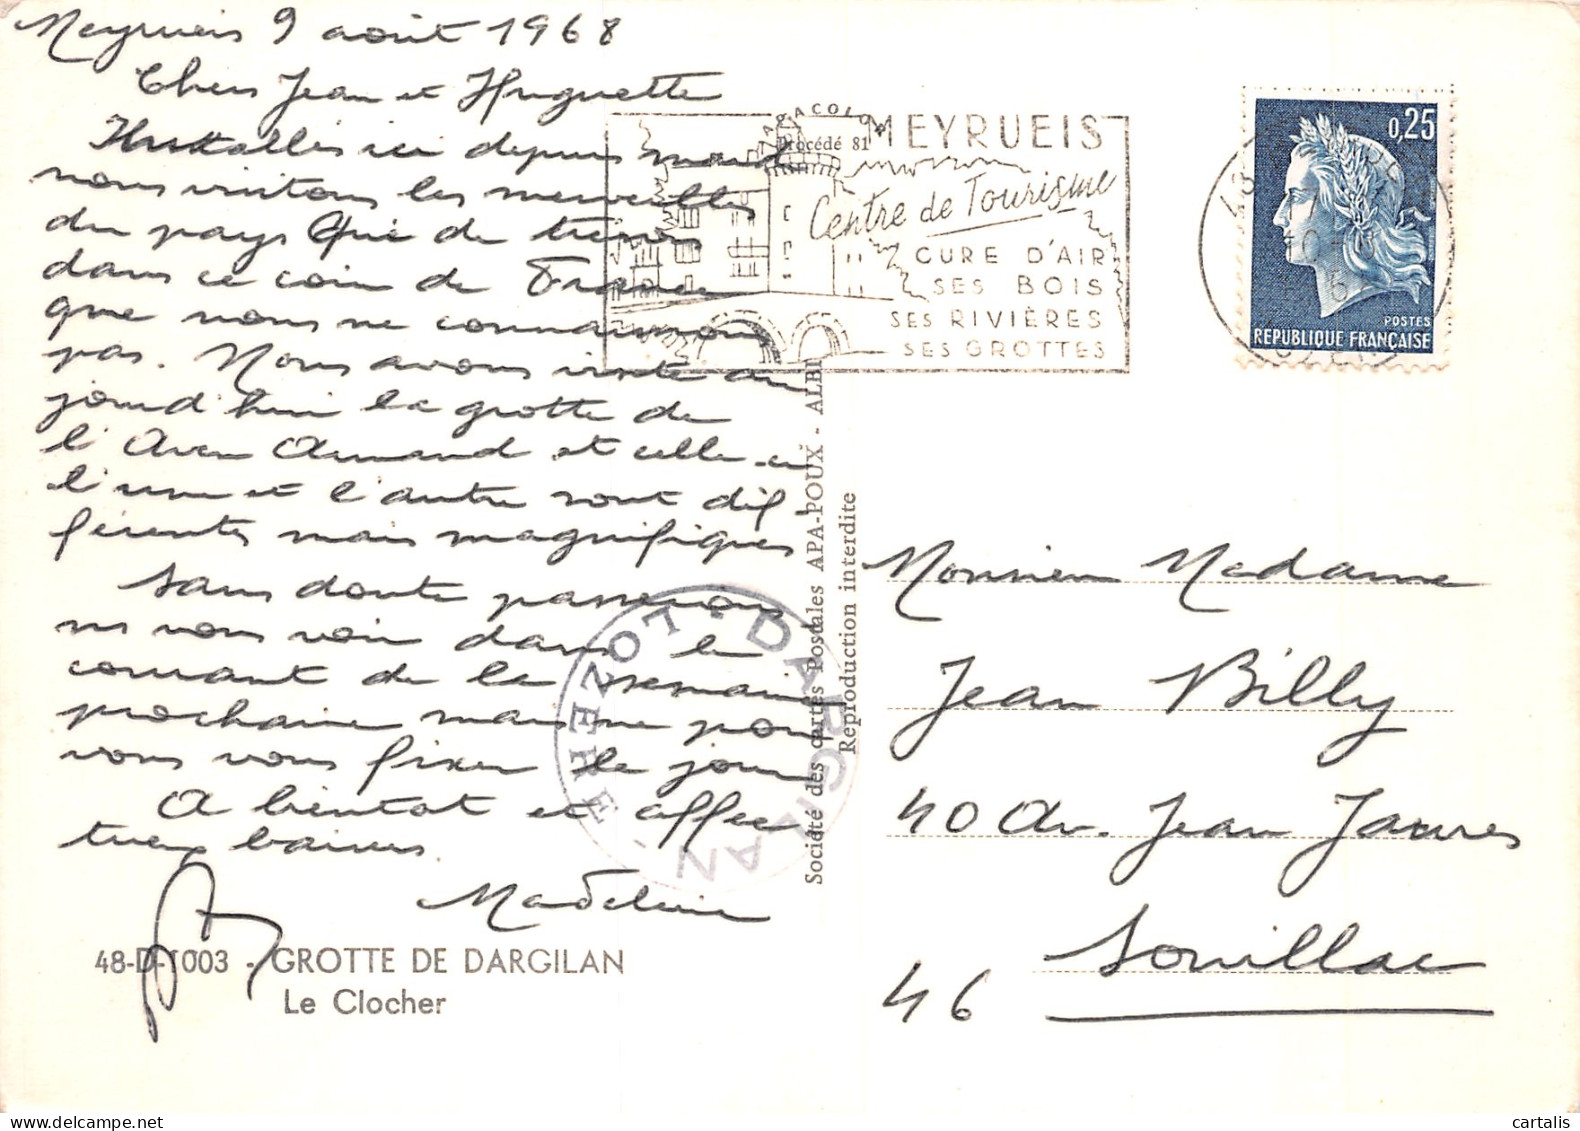 Meyrueis 9 août 1968
Chers Jean et Huguette
Installés ici depuis mardi
nous visitons les merveilles
du pays Que de trésors
dans ce coin de France
que nous ne connaissions
pas. Nous avons visité au
jourd'hui la grotte de
l'Aven Armand et celle-ci
l'une et l'autre sont dif-
férentes mais magnifiques
Sans doute passerons
ns vous voir dans le
courant de la semaine
prochaine mais ne pouv
vous vous fixer le jour
A bientôt et affec
tueux baisers.
Madeleine
48-D-1003 - GROTTE DE DARGILAN
Le Clocher
MEYRUEIS
Centre de Tourisme
CURE D'AIR
SES BOIS
SES RIVIÈRES
SES GROTTES
Procédé 81
0,25
POSTES
REPUBLIQUE FRANÇAISE
48
LOZERE
LOZERE - DARGILAN
Société des cartes Postales APA-POUX - ALBI
Reproduction interdite
Monsieur Madame
Jean Billy
40 Av. Jean Jaurès
46 Souillac
cartalis